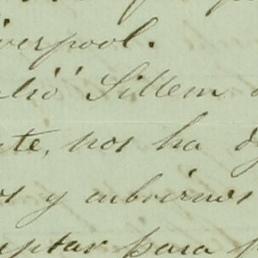 iverpool.
lio Sillem
te, nos ha
os y cubrirnos
eptar para